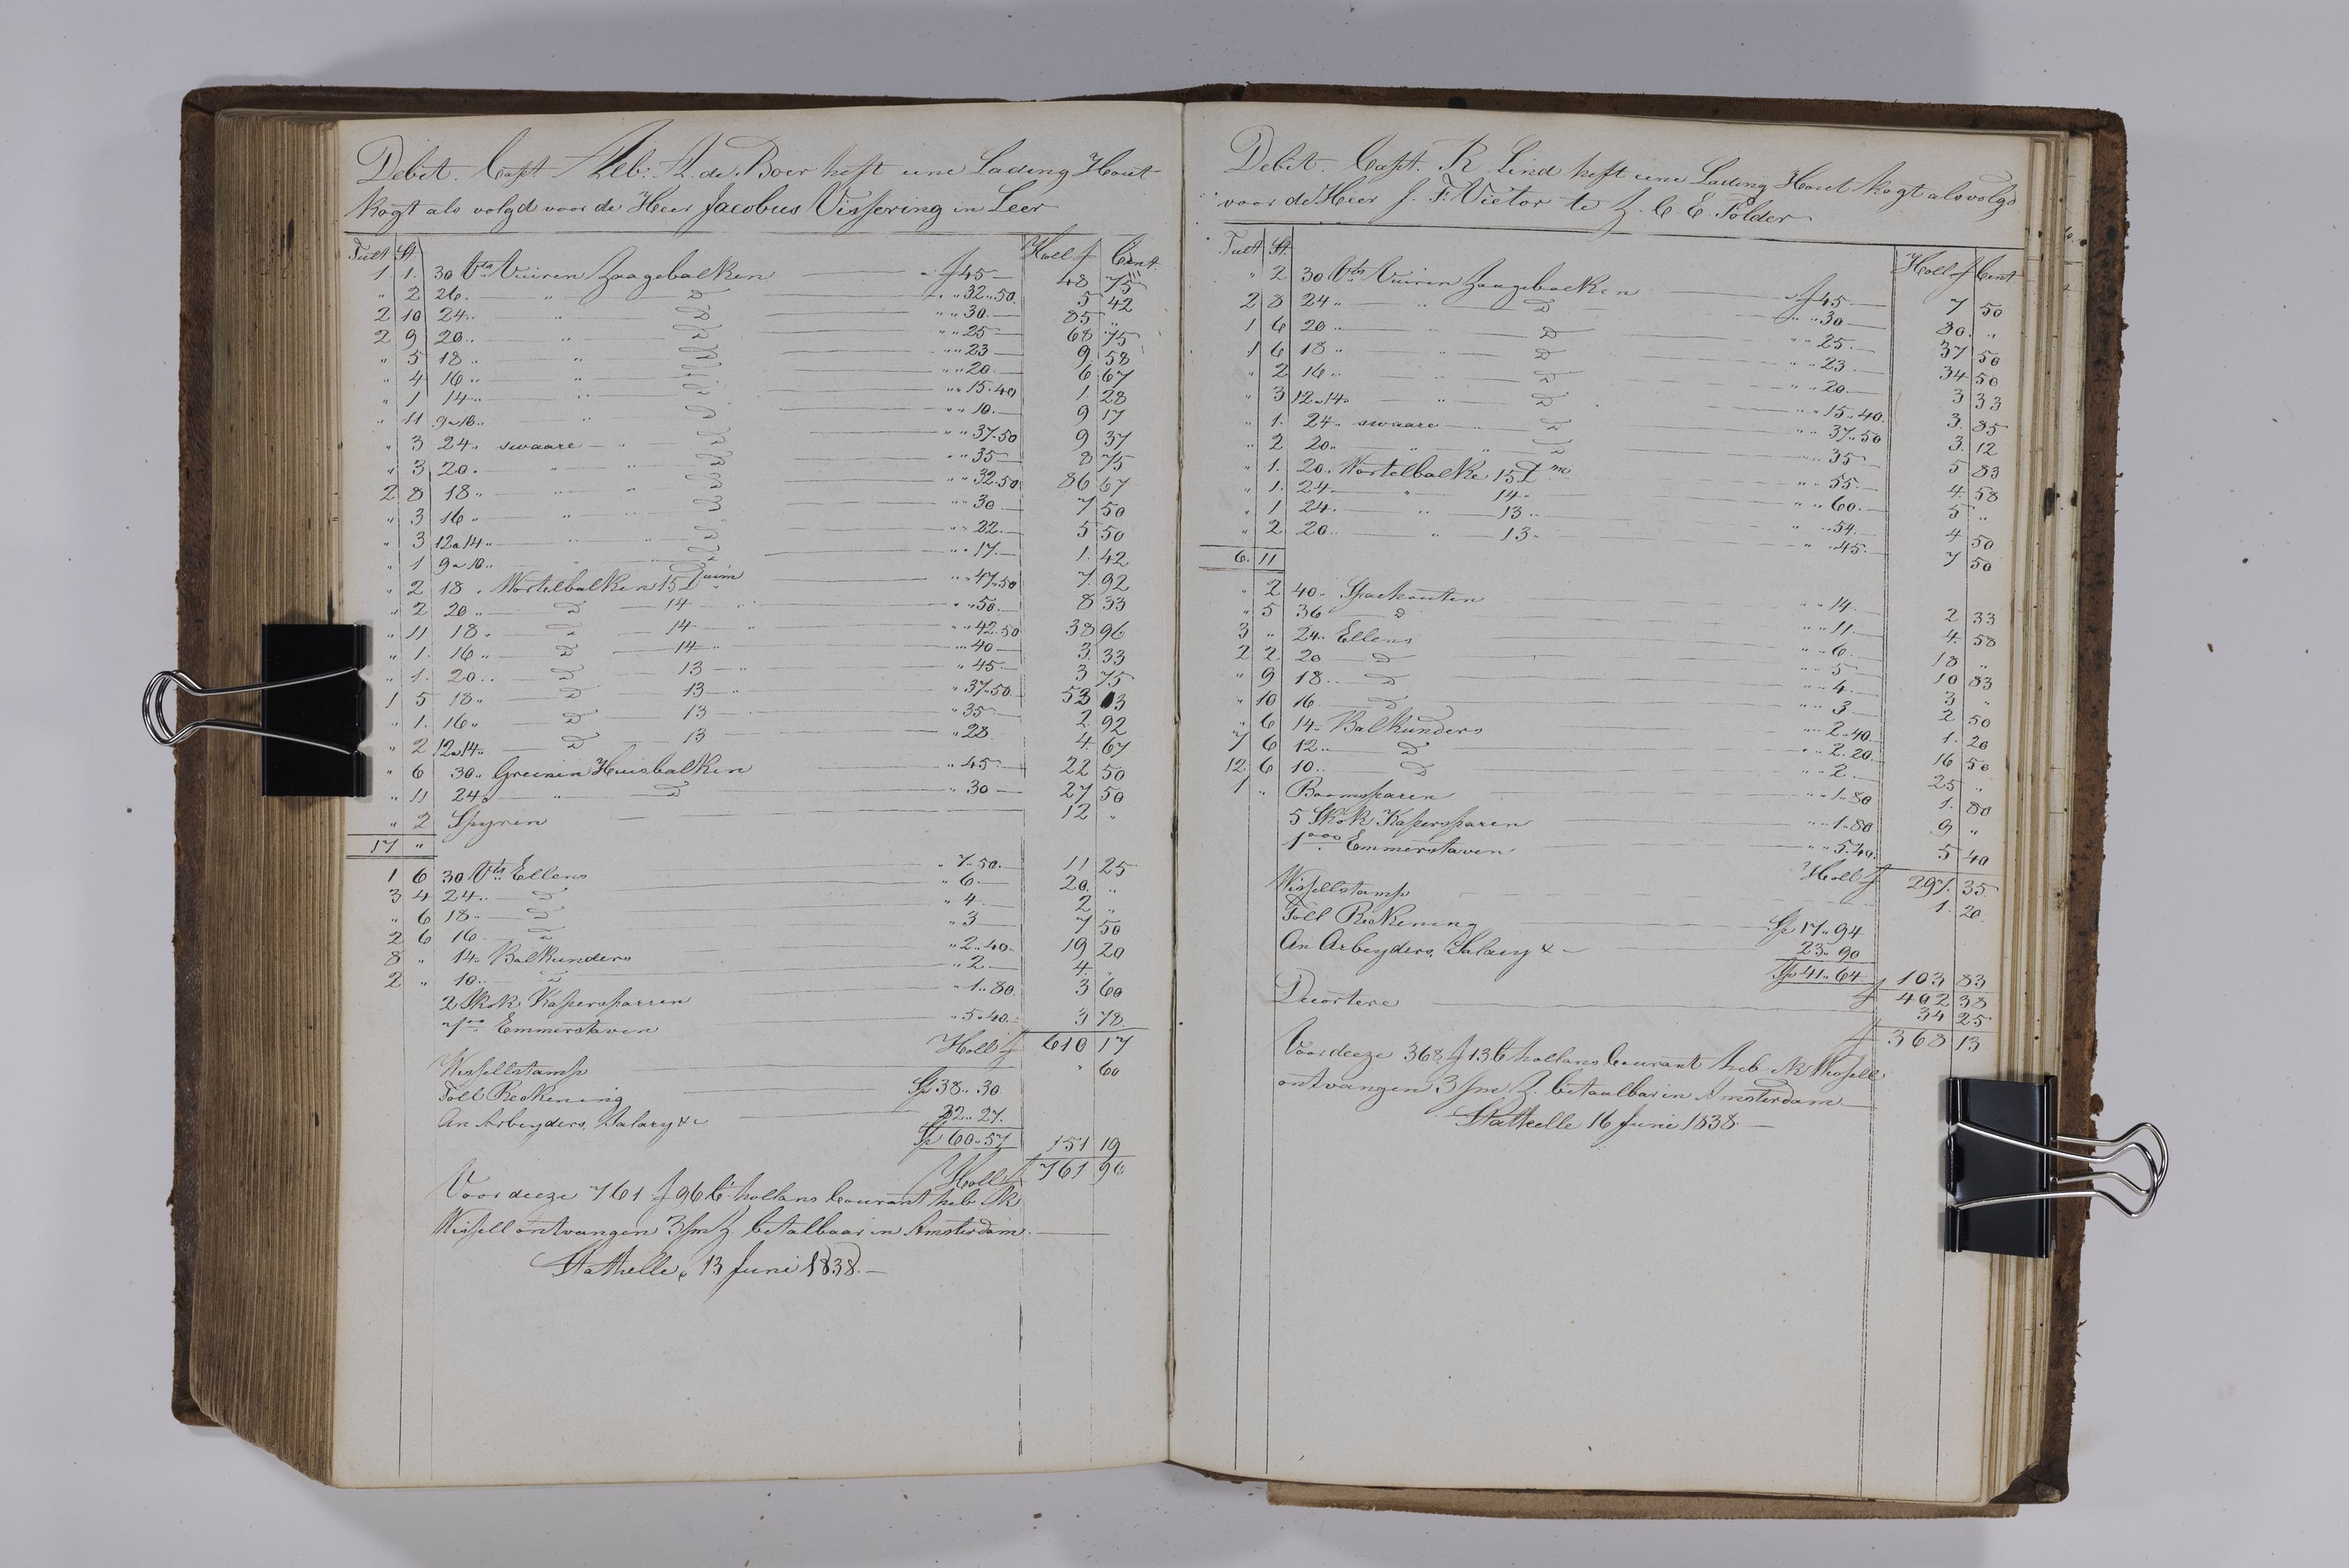 Debit. Capt. A[l]eb: H. de Boer heft eine Lading Hout
kogt als volgd voor de Heer Jacobus Vissering in Leer
Tult St. Holl f Cent.
1 1. 30 Vts Vuiren Zaagebalken — a f 45 — 48 75
" 2 26. " D " " 32 " 50. 5 42
2 10 24 " " D " " 30. — 85 "
2 9 20 " " D " " 25 — 68 75
" 5 18 " " D " " 23 — 9 58
" 4 16 " " D " " 20. — 6 67
" 1 14 " " D " " 15 " 40 1. 28
" 11 9 a 10 " " D " " 10. — 9 17
" 3 24 " swaare — " D " " 37 " 50 9 37
" 3 20. " " D " " 35 — 8 75
2 8 18 " " " D " " 32 " 50 86 67
" 3 16 " " " D " " 30 — 7 50
" 3 12 a 14 " " " D " " 22. — 5 50
" 1 9 a 10 " " " D " " 17. — 1. 42
" 2 18 " Wortelbalken 15 Duim " " 47 " 50 7. 92
" 2 20 " D — 14 " " " 50. — 8 33
" 11 18 " D — 14 — " " " 42 " 50 38 96
" 1. 16 " D — 14 — " " " 40 — 3. 33
" 1. 20 " D 13 — " " 45 — 3 75
1 5 18 " D 13 — " " 37 " 50 — 53 13
" 1. 16 " D 13 " 35 — 2. 92
" 2 12 a 14 " D 13 " 28. 4. 67
" 6 30 " Greinen Huisbalken " 45 — 22 50
" 11 24 " " D " 30 — 27 50
" 2 Spyren — 12 "
17 "
1 6 30 Vts Ellens " 7 " 50. — 11 25
3 4 24 " D " 6. — 20. "
" 6 18 " D " 4 — 2 "
2 6 16 D " 3 — 7 50
8 " 14 " Balkunders " 2 " 40. 19 20
2 " 10 " D " 2 — 4. "
2 Skok Kapersparren " 1 " 80. 3 60
700 Emmerstaven " 5 " 40. 3 78
Holl f 610 17
Wissellstamp " 60
Toll Reckening Sp 38 " 30
An Arbeyders, Salary &c 22 " 27.
Sp 60 " 57 151 19
Holl f 761 96
Voor deeze 761 f 96 Ct hollans Courant heb Ik
Wissell ontvangen 3/m Z. betalbaar in Amsterdam. —
Stathelle, 13 Juni 1838. —
Debit. Capt. R Lind heft eine Lading Hout kogt als volgd
voor de Heer J. F. Victor te Z. C. E. Polder
Tult St. Holl f Cent
" 2 30 Vts Vuiren Zaagebalken f 45 — 7 50
2 8 24 " " D " " 30 — 80. "
1 6 20 " " D " " 25. — 37 50
1 6 18 " " D " " 23. — 34 50
" 2 16 " " D " " 20. — 3 33
" 3 12 a 14 " " D " " 15 " 40. 3. 85
" 1. 24 " swaare — " D " " 37 " 50 3. 12
" 2 20 " " " D " " 35 — 5 83
" 1. 20. Wortelbalke 15 Dm " " 55. — 4. 58
" 1. 24 — " 14 " " " 60. — 5 "
" 1 24. — " — 13 " " " 54. — 4 50
" 2 20 — " — 13 " " " 45. — 7 50
6. 11
" 2 40 " Sparhouten " " 14. — 2 33
" 5 36 — D " " 11. — 4. 58
3 " 24 " Ellens " " 6 — 18 "
2 2. 20 — D " " 5 — 10 83
" 9 18 " — D " " 4. — 3 "
" 10 16 — D " " 3 — 2 50
" 6 14 " Balkunders " " 2 " 40. — 1. 20
7 6 12 " D " " 2. 20. 16 50
12. 6 10 " D " " 2. — 25 "
1 " Boomsparen " " 1 " 80 1. 80
5 Skok Kapersparen " " 1 " 80 9 "
1000 Emmerstaven " " 5 " 40. 5 40
Holl f 297. 35
Wissellstamp 1. 20.
Toll Reckening Sp 17 " 94
An Arbeyders, Salary & — 23 " 90
Sp 41 " 64 — 103 83
f 402 38
Decortere 34 25
f 368 13
Voor deeze 368 f 13 Ct hollans Courant heb Ik Wissell
ontvangen 3/m Z. betaalbar in Amsterdam —
Stathelle 16 Juni 1838. —